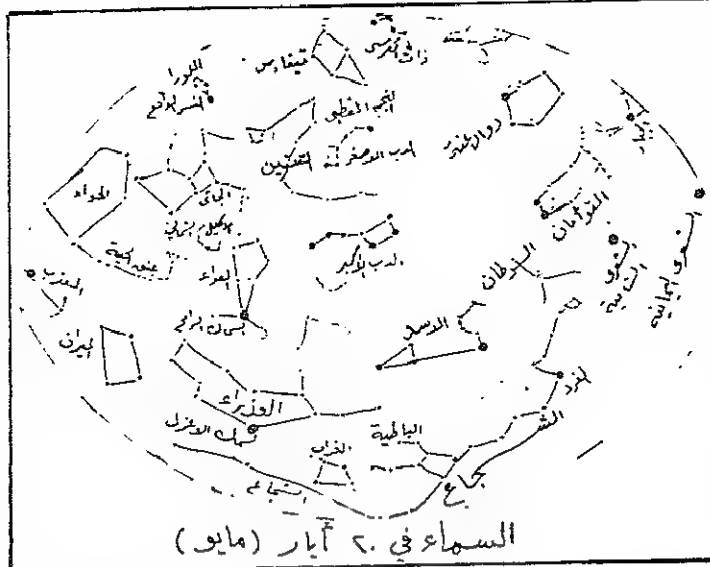 ذات الكرسي
قيفاوس
اللورا
النسر الواقع
النجم القطبي
الدب الاصغر
التنين
الحواء
الجاثي
عنق الحية
العواء
الدب الأكبر
التوأمان
السرطان
الشعرى
الشعرى اليمانية
العقرب
الميزان
السماك الرامح
الاسد
الفرد
العذراء
سمك الاعزل
الباطية
الغراب
الشجاع
الشجاع
السماء في ٢٠ أيار (مايو)